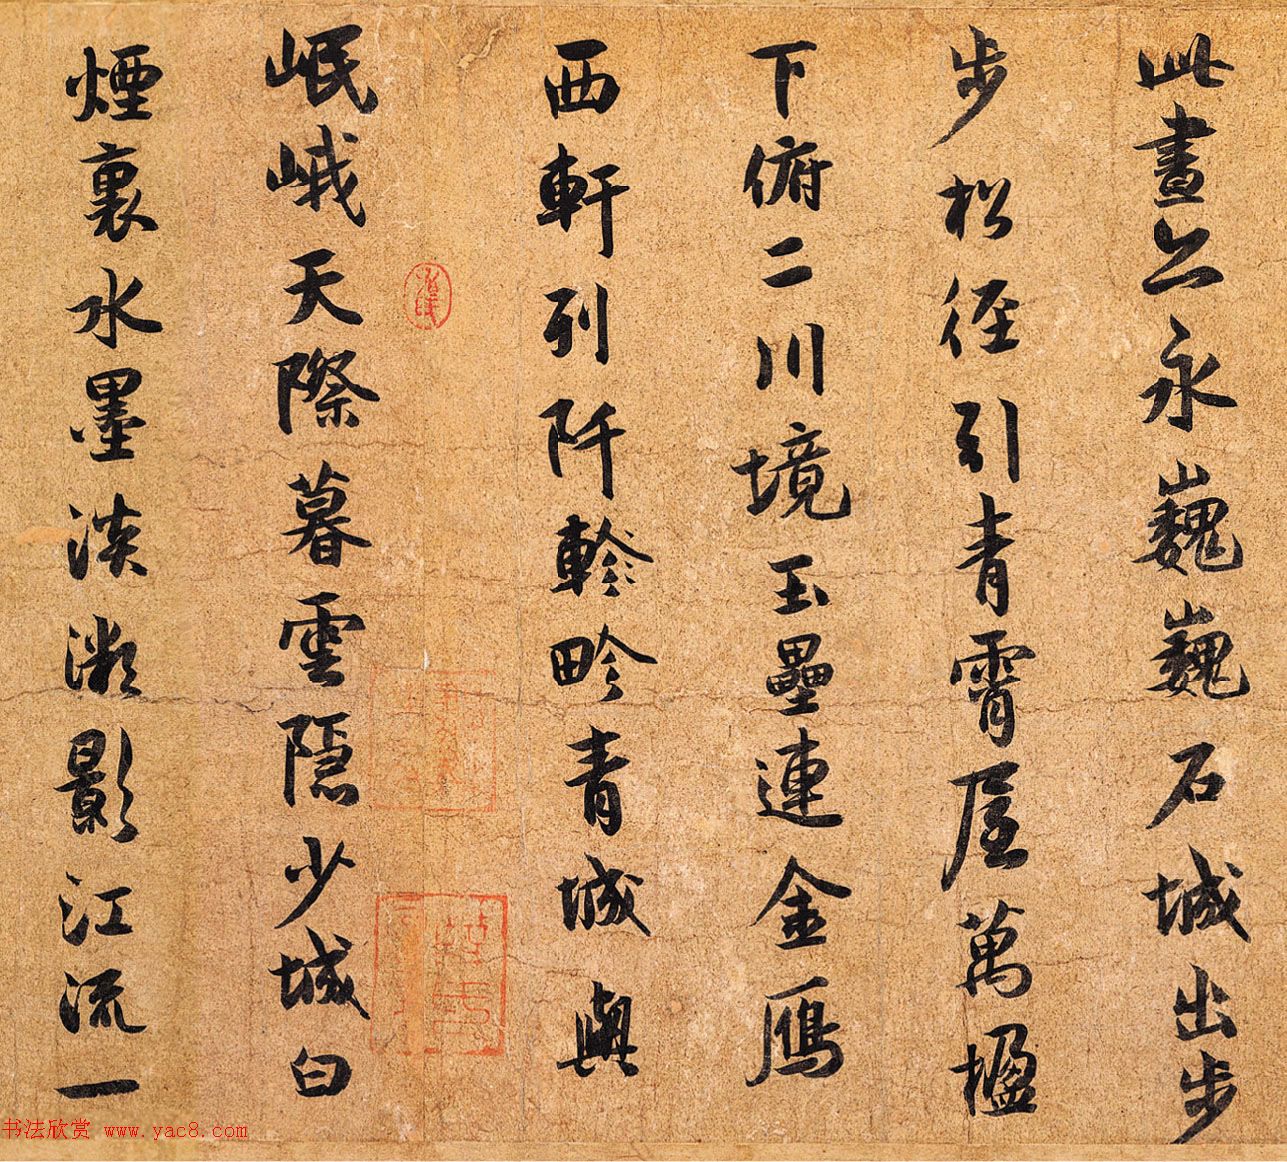 此畫公永巍巍石城出步
步松徑引青霄屋萬楹
下俯二川境玉壘連金鴈
西軒列阡軫畛青城與
岷峨天際暮雲隱少城白
煙裏水墨淡影江流一
书法欣赏 www.yac8.com